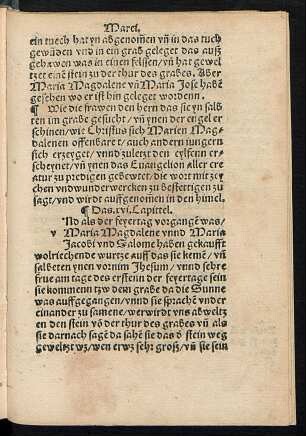 Marci.
ein tuech hat yn abgenom̃en vñ in das tuch
gewũden vnd in ein grab geleget das ausz
gehawen was in einen felssen/ vñ hat gewel
tzet eineñ stein zu der thur des grabes. Aber
Maria Magdalene vñ Maria Jose habẽ
gesehen wo er ist hin geleget wordenn.
¶ Wie die frawen den herrn das sie yn salb
ten im grabe gesucht/ vñ ynen der engel er
schinen/ wie Christus sich Marien Mag-
dalenen offenbaret/ auch andern iungern
sich erzeyget/ vnnd zuletzt den eylffenn er-
scheynet/ vñ ynen das Euangelion aller cre
atur zu predigen gebewtet/ die wort mit zey
chen vnd wunderwercken zu bestettigen zu
sagt/ vnd wirt auffgenomen in den himel.
¶ Das. xvi. Capittel.
v Nd als der feyertag vorgangẽ was/
Maria Magdalene vnnd Maria
Jacobi vnd Salome haben gekaufft
wolriechende wurtze auff das sie kemẽ/ vñ
salbeten ynen vornim Jhesum/ vnnd sehre
frue am tage des erstenn der feyertage sein
sie kommenn tzw dem grabe da die Sunne
was auffgegangen/ vnnd sie sprachẽ vnder
einander zu samene/ wer wirdt vns abweltz
en den stein võ der thur des grabes vñ als
sie darnach sagẽ da sahẽ sie das d' stein weg
geweltzt wz/ wen er wz sehr grosz/ vñ sie sein